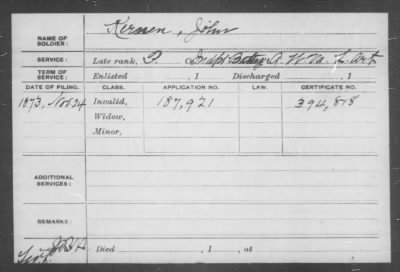 NAME OF SOLDIER: Kernen, John
SERVICE: Late rank, P. Indpt Battery A. W. Va. L. Art.
TERM OF SERVICE: Enlisted , 1 Discharged , 1
DATE OF FILING. CLASS. APPLICATION NO. LAW. CERTIFICATE NO.
1873, Nov 24 Invalid, 187,921 394,878
Widow,
Minor,
ADDITIONAL SERVICES:
REMARKS:
Died , 1 , at